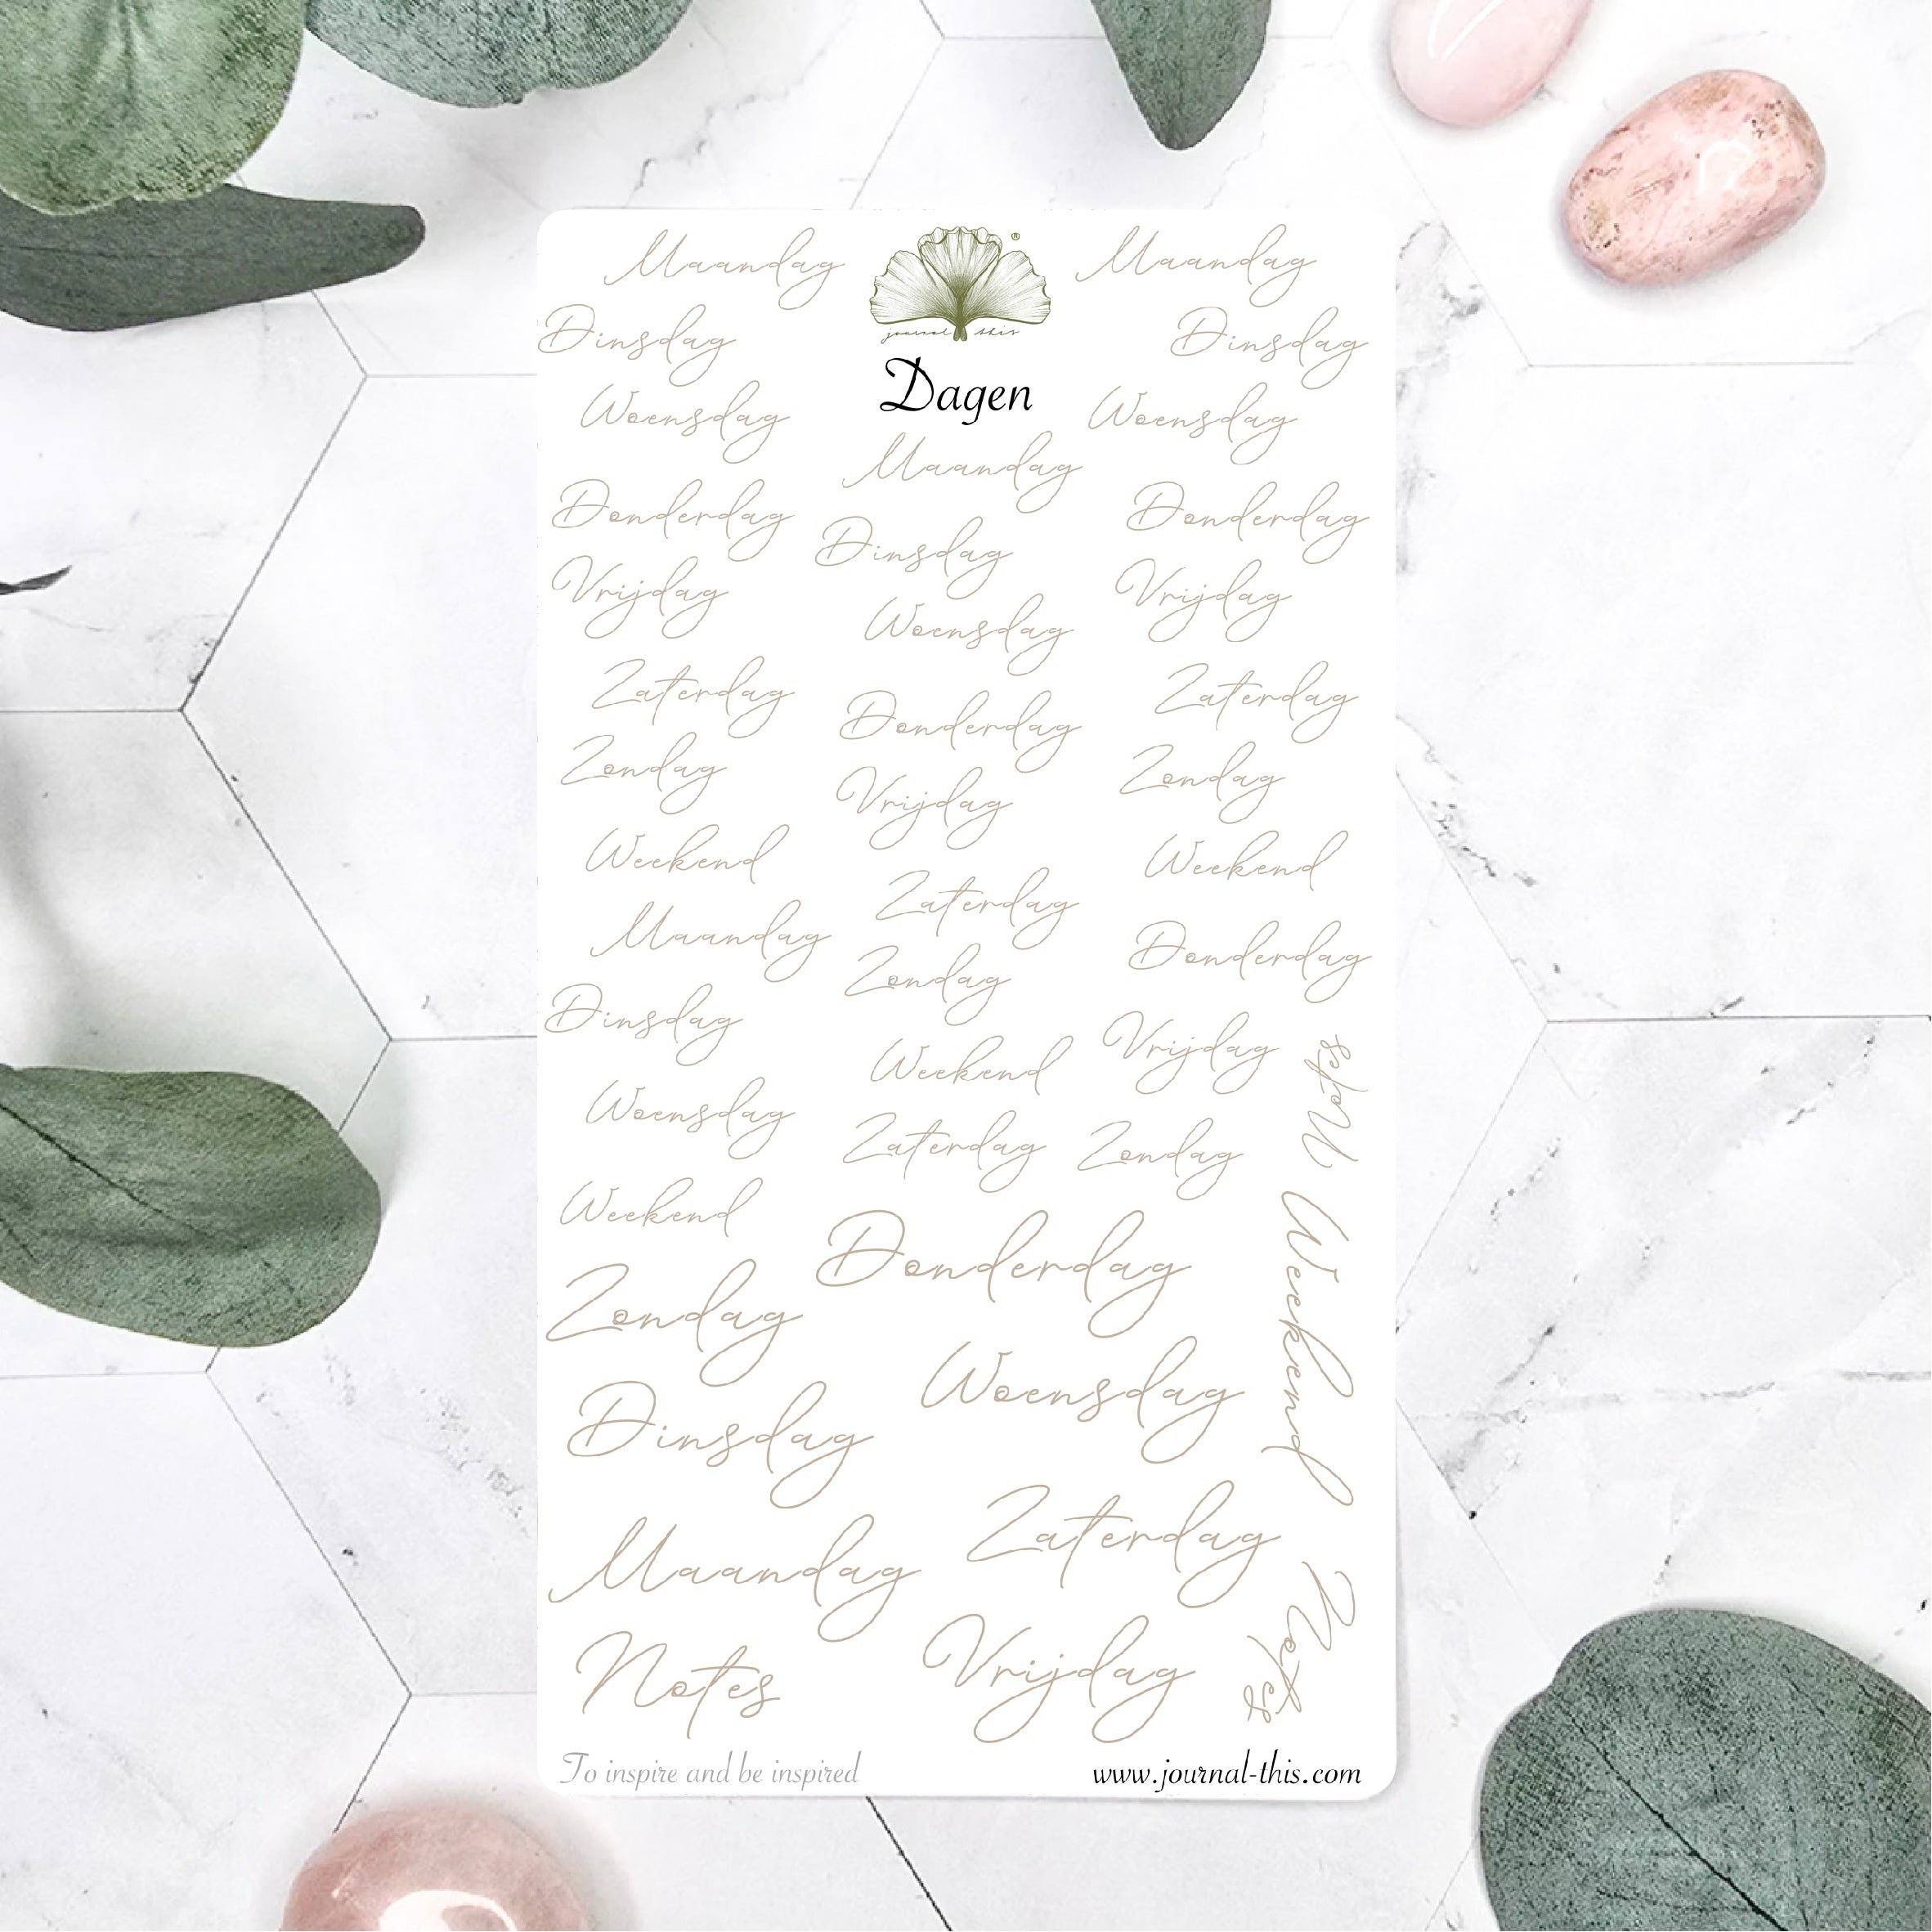 Maandag
®
Maandag
journal this
Dinsdag
Dinsdag
Dagen
Woensdag
Woensdag
Maandag
Donderdag
Donderdag
Dinsdag
Vrijdag
Vrijdag
Woensdag
Zaterdag
Zaterdag
Donderdag
Zondag
Zondag
Vrijdag
Weekend
Weekend
Zaterdag
Maandag
Donderdag
Zondag
Dinsdag
Vrijdag
Weekend
Notes
Woensdag
Zaterdag
Zondag
Weekend
Donderdag
Weekend
Zondag
Woensdag
Dinsdag
Zaterdag
Maandag
Notes
Vrijdag
Notes
To inspire and be inspired
www.journal-this.com